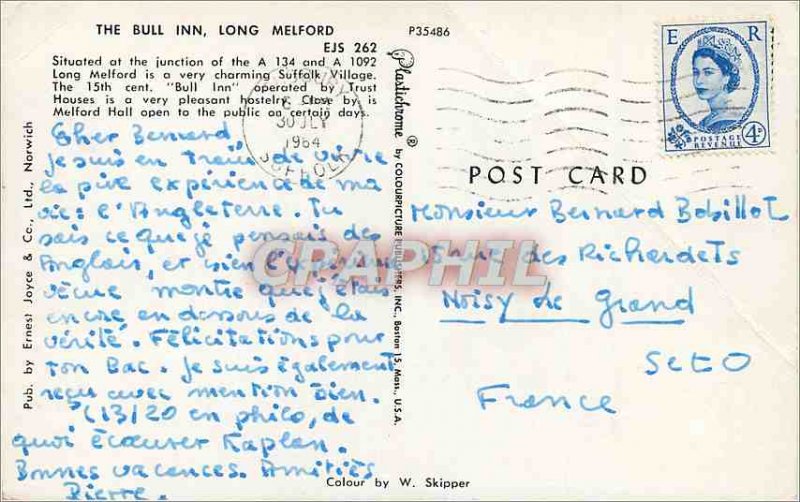 THE BULL INN, LONG MELFORD
P35486
EJS 262
Situated at the junction of the A 134 and A 1092
Long Melford is a very charming Suffolk Village.
The 15th cent. "Bull Inn" operated by Trust
Houses is a very pleasant hostelry. Close by is
Melford Hall open to the public on certain days.
30 JLY
1964
SUFFOLK
Cher Bernard
je suis en train de vivre
la pire expérience de ma
vie: l'Angleterre. Tu
sais ce que je pensais des
Anglais, et bien l'expérience
vécue montre que j'étais
encore en dessous de la
vérité. Félicitations pour
ton Bac. Je suis également
reçu avec mention bien.
(13/20 en philo, de
quoi écoeurer Kaplan.
Bonnes vacances. Amitiés
Pierre.
Pub. by Ernest Joyce & Co., Ltd., Norwich
Plastichrome ® by COLOURPICTURE PUBLISHERS, INC., Boston 15, Mass., U.S.A.
E R
POSTAGE
REVENUE
4D
POST CARD
Monsieur Bernard Bobillot
rue des Richardets
Noisy le Grand
Set O
France
CRAPHIL
Colour by W. Skipper